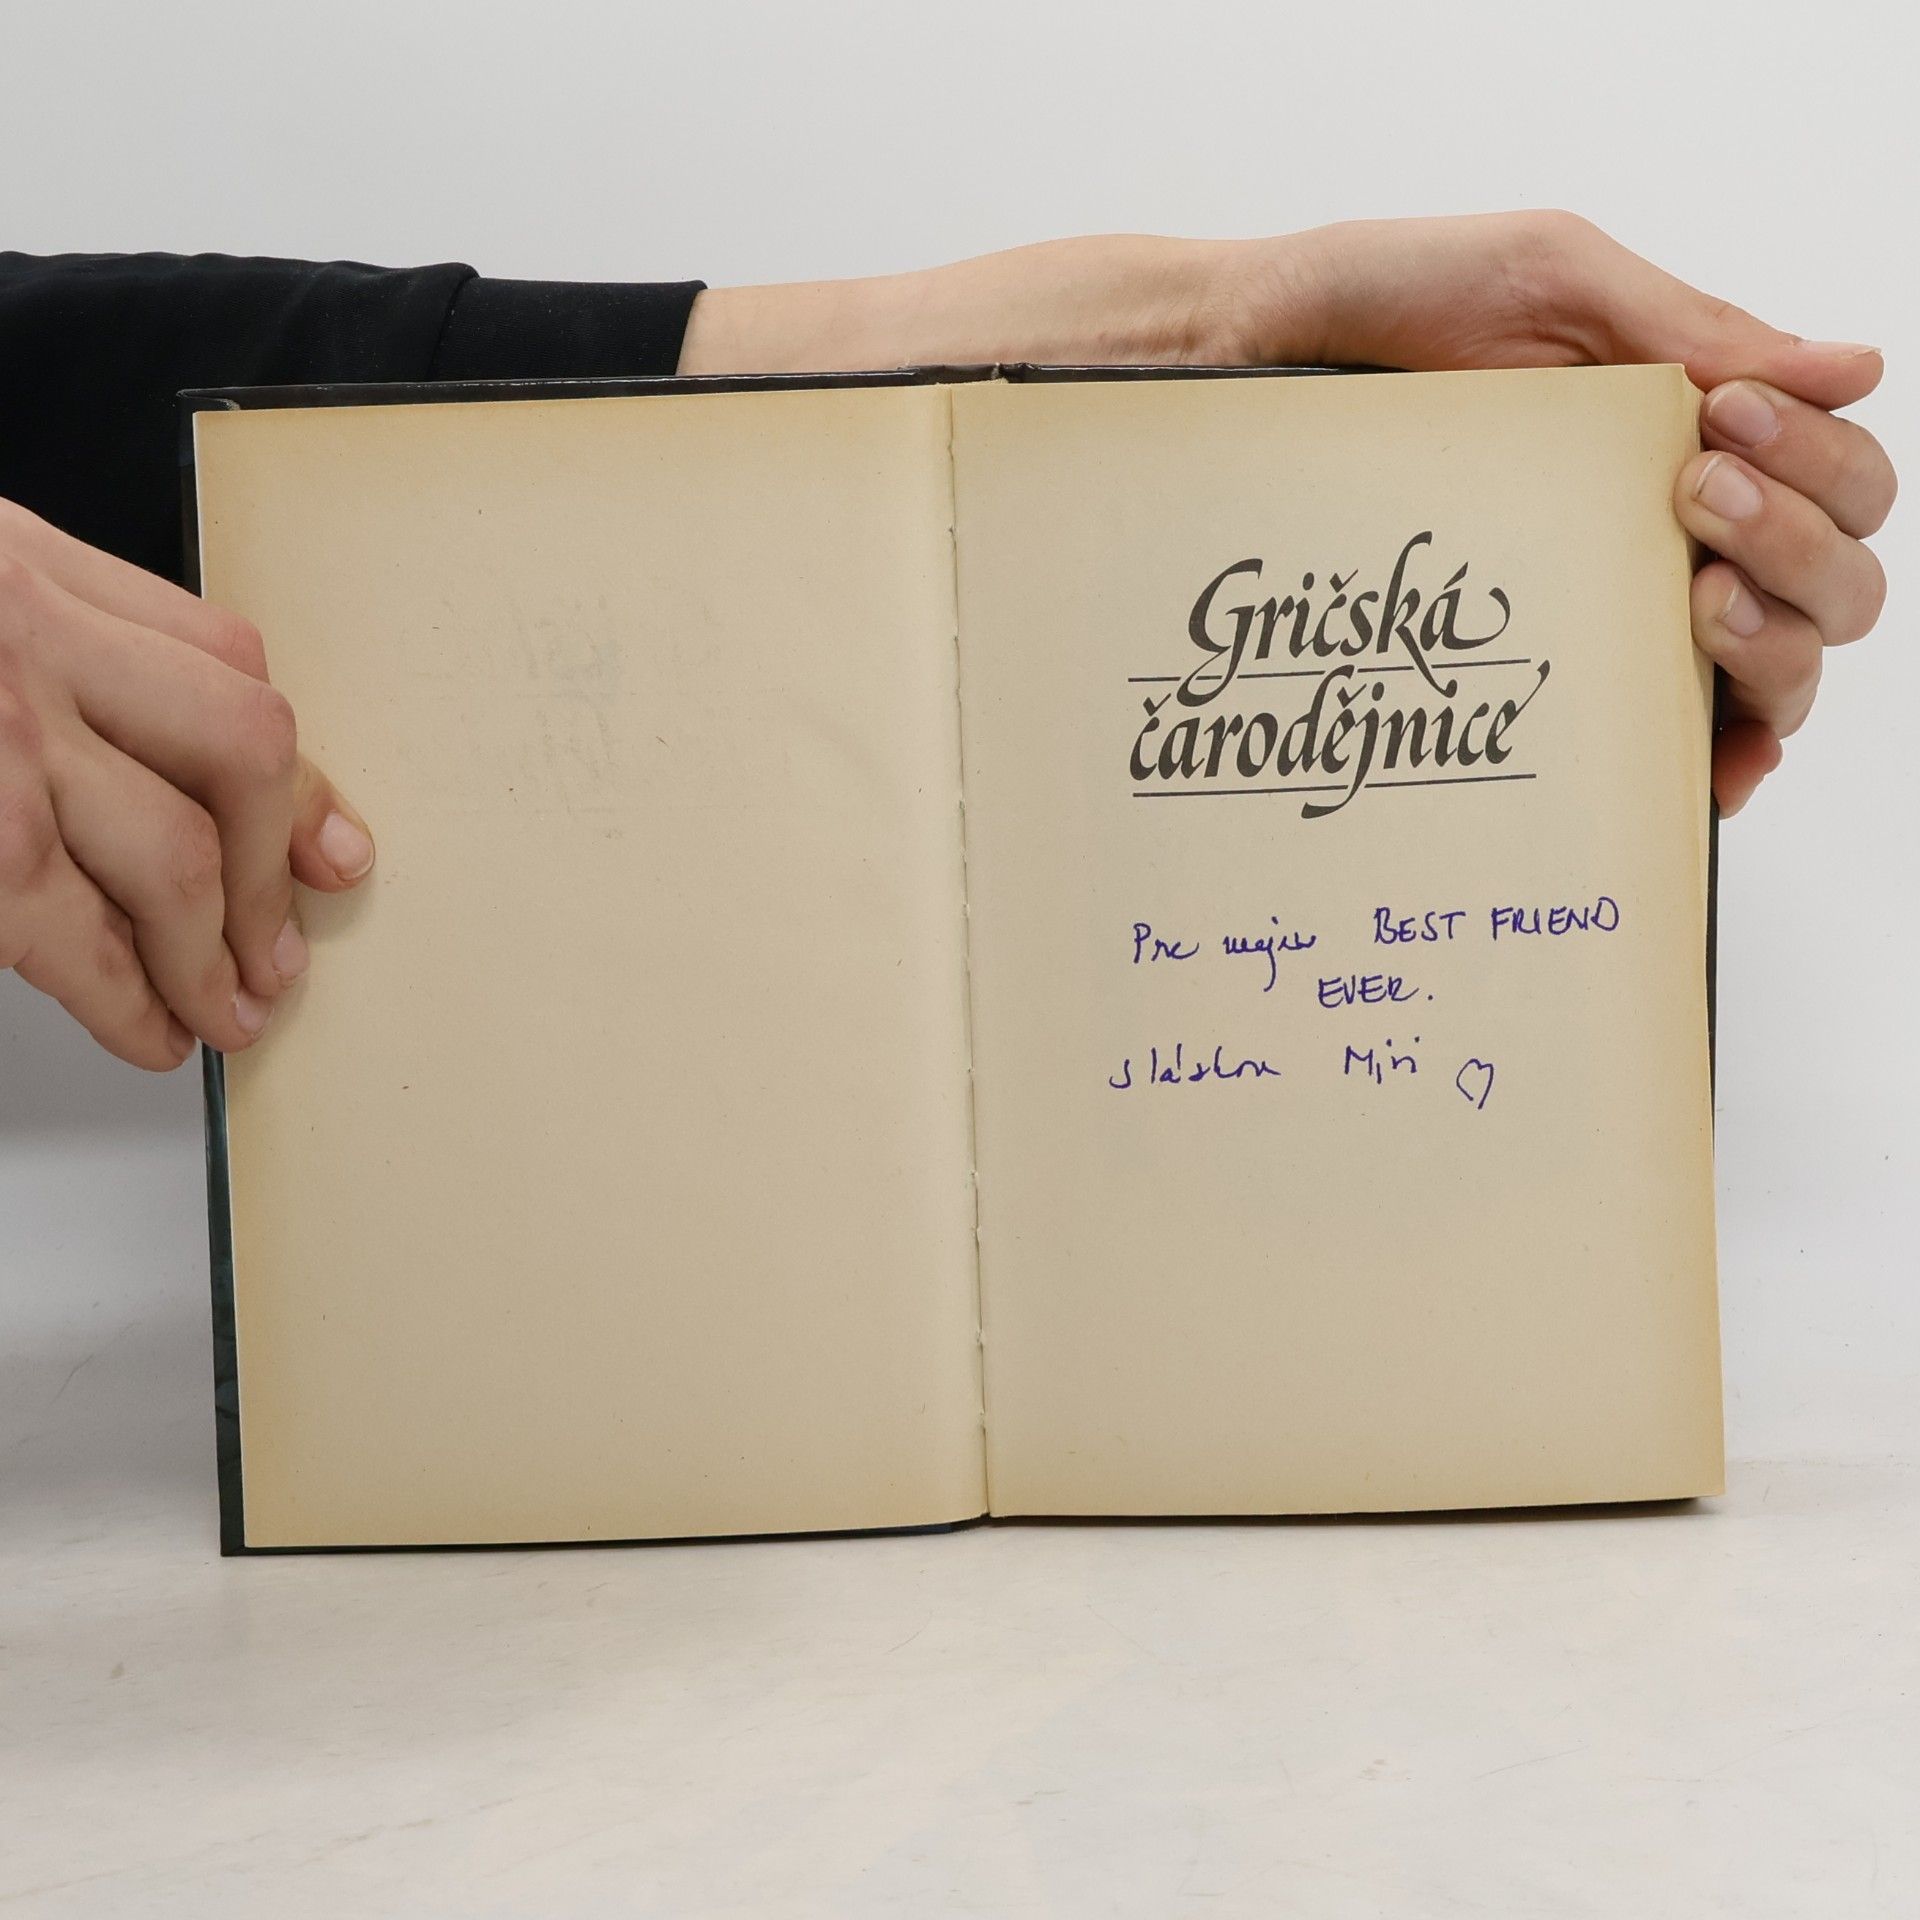 Gričská
čarodějnice
Pre moju BEST FRIEND
EVER.
S láskou Miri